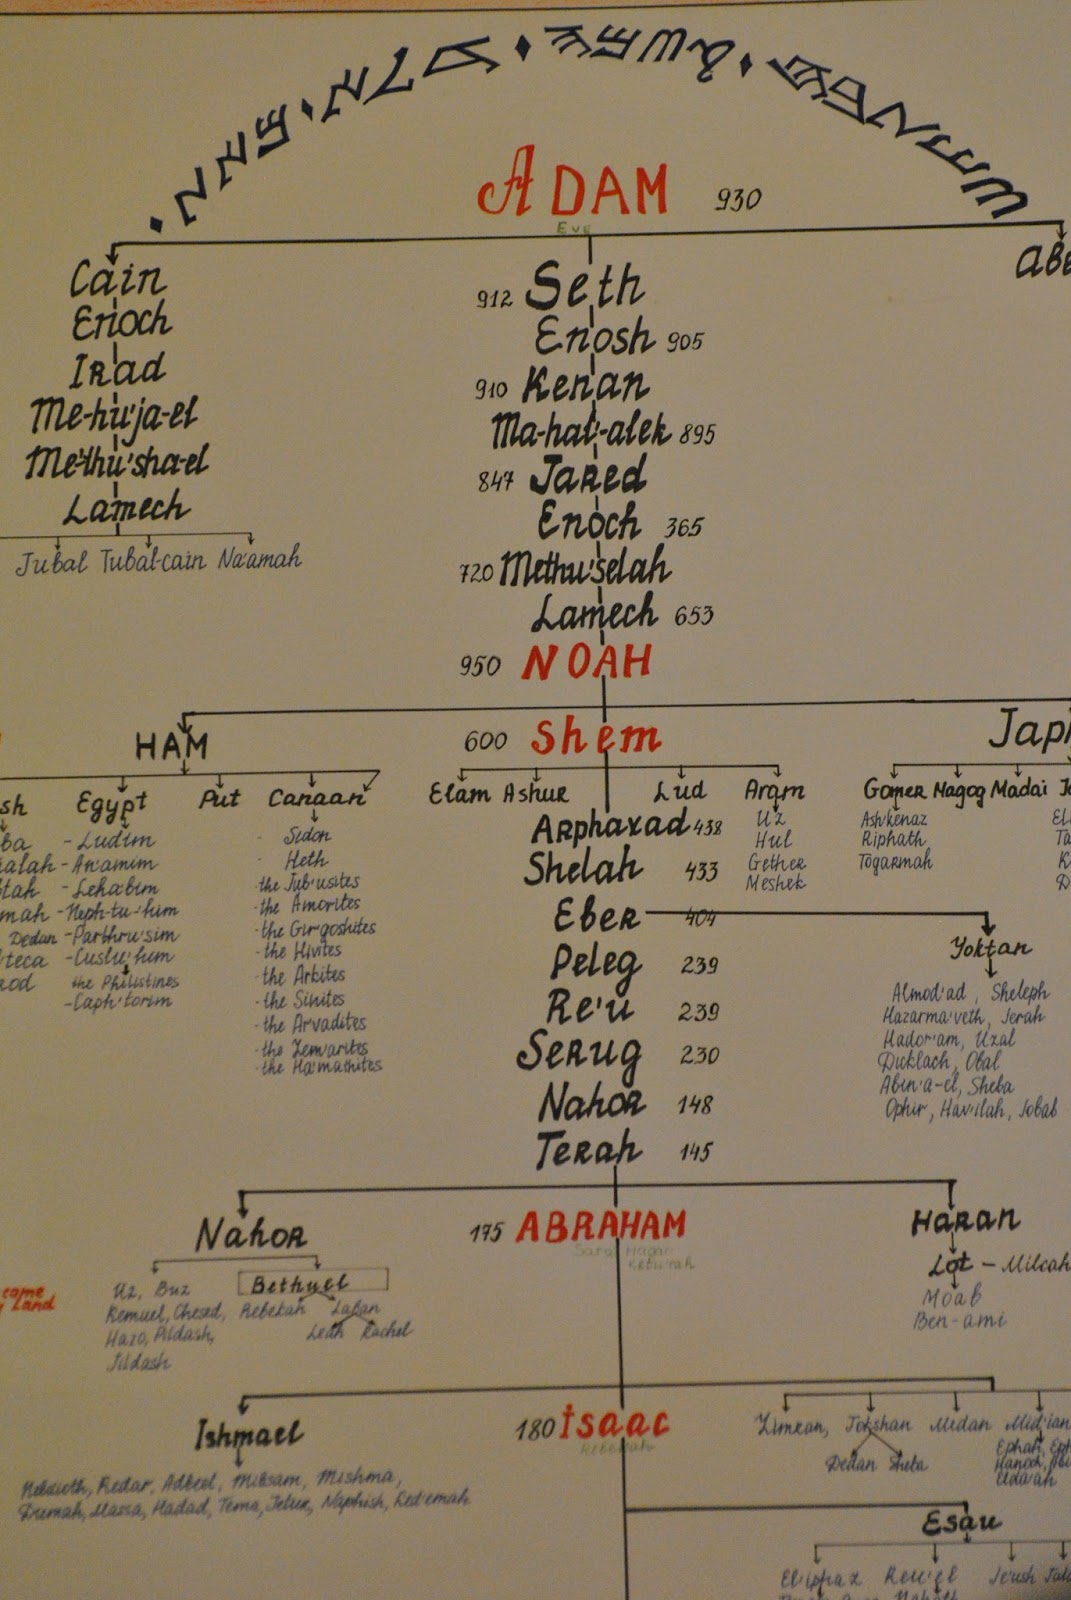 ADAM 930
Eve
Cain
Enoch
Irad
Me-hu'ja-el
Me-thu'sha-el
Lamech
Jubal Tubal-cain Na'amah
912 Seth
Enosh 905
910 Kenan
Ma-hal'-alek 895
847 Jared
Enoch 365
720 Methu'selah
Lamech 653
950 NOAH
HAM
600 Shem
Egypt Put Canaan
-Ludim
-An'amim
-Leha'bim
-Neph-tu-'him
-Pathru'sim
-Cuslu'him
the Philistines
-Caph'torim
- Sidon
- Heth
-the Jub'usites
-the Amorites
-the Gir'goshites
-the Hivites
-the Arkites
-the Sinites
-the Ar'vadites
-the Zem'arites
-the Ha'mathites
Dedan
Elam Ashur Lud Aram
Uz
Hul
Gether
Meshek
Gomer Magog Madai
Ash'kenaz
Riphath
Togarmah
Arphaxad 438
Shelah 433
Eber 404
Peleg 239
Re'u 239
Serug 230
Nahor 148
Terah 145
Yoktan
Almod'ad, Sheleph
Hazarma'veth, Jerah
Hador'am, Uzal
Dicklach, Obal
Abin'a-el, Sheba
Ophir, Hav'ilah, Jobab
Nahor
Uz, Buz
Kemuel, Chesed,
Hazo, Pildash,
Jildash
Bethuel
Rebekah Laban
Leah Rachel
175 ABRAHAM
Sara Hagar
Ketu'rah
Haran
Lot - Milcah
Moab
Ben-ami
come
Land
Ishmael
Nebaioth, Kedar, Adbeel, Mibsam, Mishma,
Dumah, Massa, Hadad, Tema, Jetur, Naphish, Ked'emah
180 Isaac
Rebekah
Zimran, Jokshan Medan Mid'ian
Dedan Sheba
Ephah,
Esau
El'iphaz Reu'el Je'ush